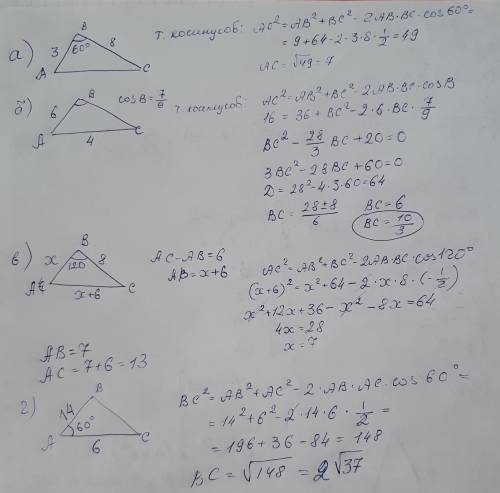 а)
B
3 60° 8
A C
т. косинусов: AC² = AB² + BC² - 2AB·BC·cos60° =
= 9 + 64 - 2·3·8·1/2 = 49
AC = √49 - 7
б)
B
6
A 4 C
cosB = 7/9
т. косинусов: AC² = AB² + BC² - 2AB·BC·cosB
16 = 36 + BC² - 2·6·BC·7/9
BC² - 28/3 BC + 20 = 0
3BC² - 28BC + 60 = 0
D = 28² - 4·3·60 = 64
BC = (28 ± 8)/6 BC = 6
BC = 10/3
в)
B
x 120 8
A C
x+6
AC - AB = 6
AB = x + 6
AC² = AB² + BC² - 2AB·BC·cos120°
(x+6)² = x² + 64 - 2·x·8·(-1/2)
x² + 12x + 36 - x² - 8x = 64
4x = 28
x = 7
AB = 7
AC = 7 + 6 = 13
г)
B
14
60°
A 6 C
BC² = AB² + AC² - 2·AB·AC·cos60° =
= 14² + 6² - 2·14·6·1/2 =
= 196 + 36 - 84 = 148
BC = √148 = 2√37